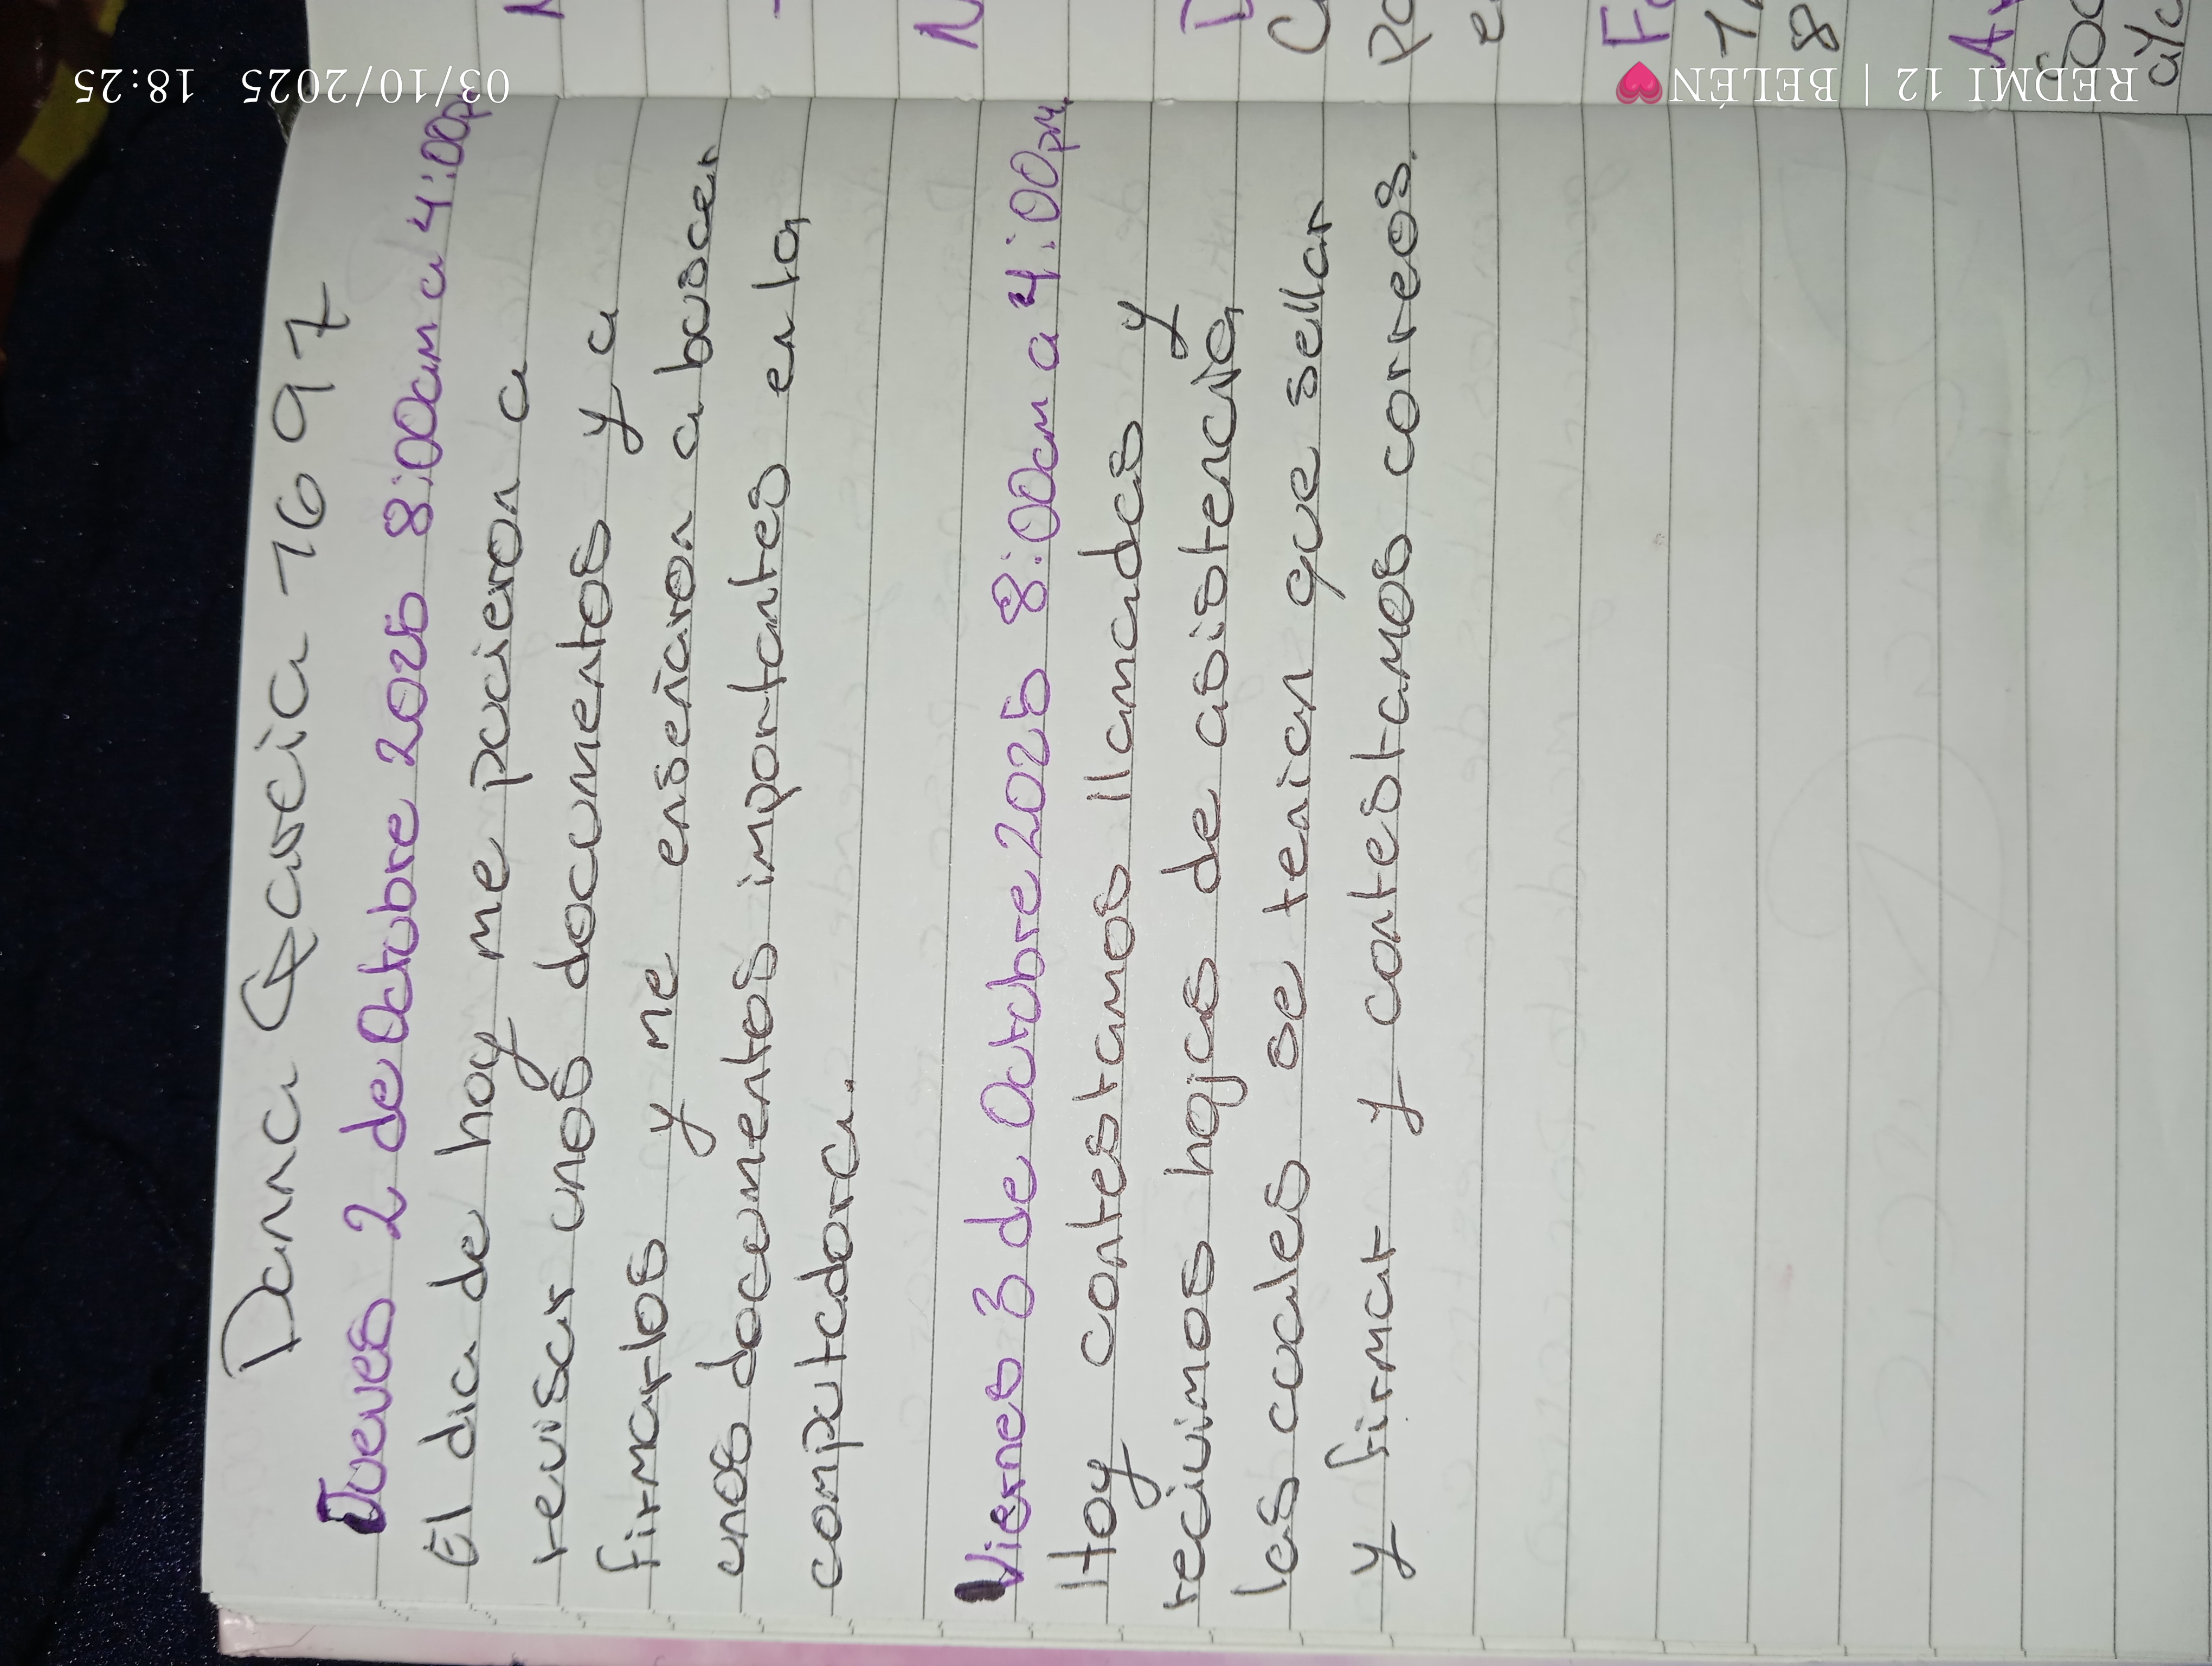 Danna Garcia 7697
Jueves 2 de Octubre 2025 8:00am a 4:00pm
El dia de hoy me pucieron a
revisar unos documentos y a
firmarlos y me enseñaron a buscar
unos documentos importantes en la
computadora.
Viernes 3 de Octubre 2025 8:00am a 4:00pm.
Hoy contestamos llamadas y
recivimos hojas de asistencia
las cuales se tenian que sellar
y firmar y contestamos correos.
REDMI 12 | BELÉN
03/10/2025 18:25